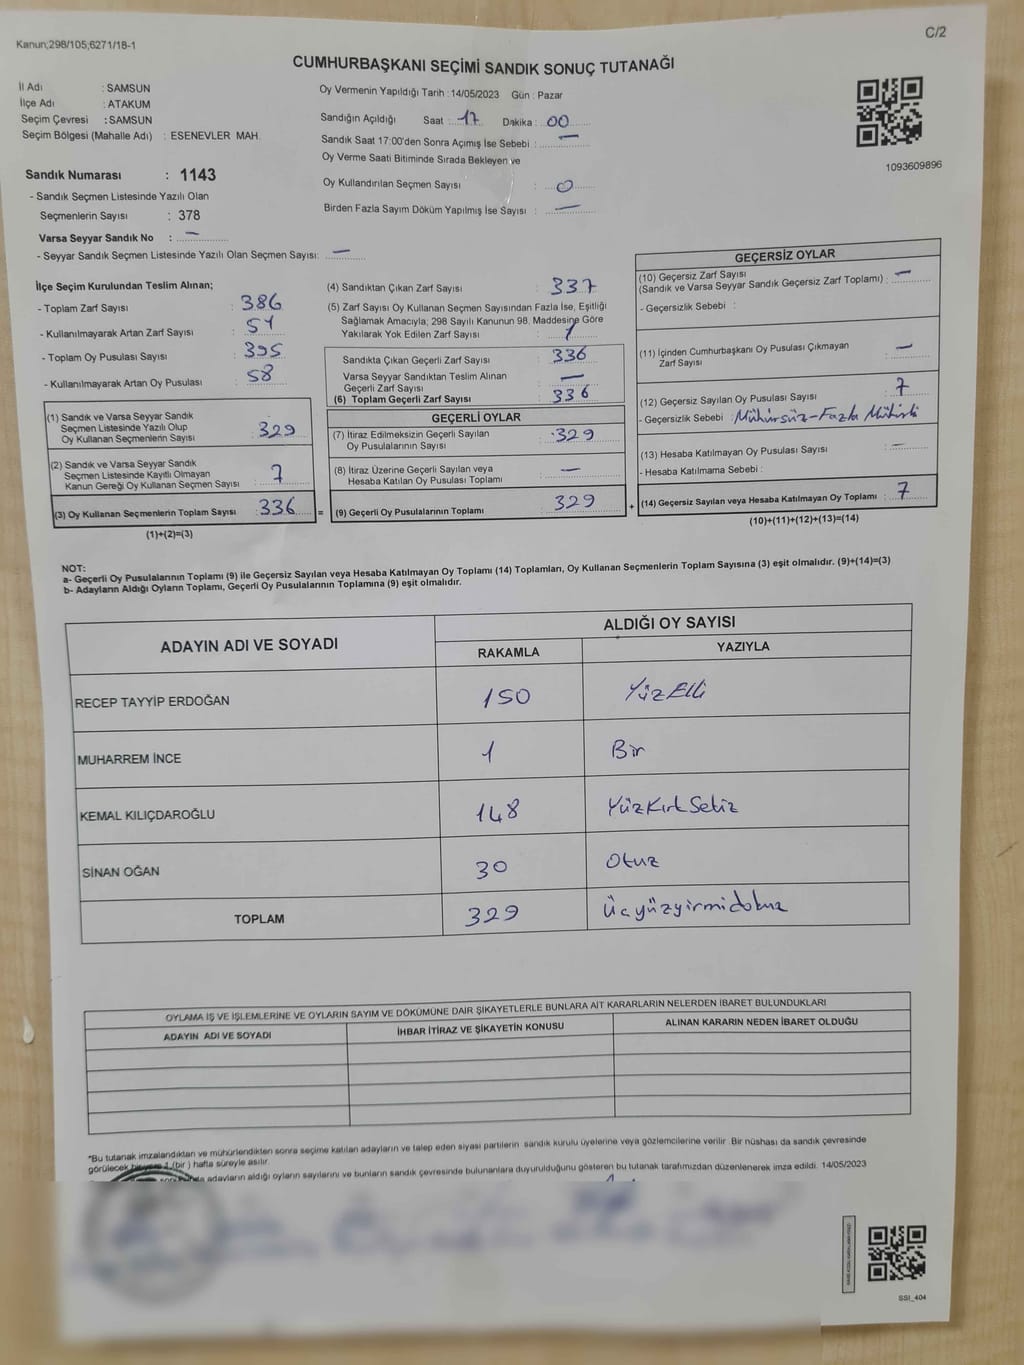 Kanun;298/105;6271/18-1
C/2
CUMHURBAŞKANI SEÇİMİ SANDIK SONUÇ TUTANAĞI
İl Adı : SAMSUN
İlçe Adı : ATAKUM
Seçim Çevresi : SAMSUN
Seçim Bölgesi (Mahalle Adı) : ESENEVLER MAH.
Sandık Numarası : 1143
- Sandık Seçmen Listesinde Yazılı Olan
Seçmenlerin Sayısı : 378
Varsa Seyyar Sandık No : —
- Seyyar Sandık Seçmen Listesinde Yazılı Olan Seçmen Sayısı: —
Oy Vermenin Yapıldığı Tarih : 14/05/2023 Gün : Pazar
Sandığın Açıldığı Saat : 17 Dakika : 00
Sandık Saat 17:00'den Sonra Açımış İse Sebebi : —
Oy Verme Saati Bitiminde Sırada Bekleyen ve
Oy Kullandırılan Seçmen Sayısı : 0
Birden Fazla Sayım Döküm Yapılmış İse Sayısı : —
1093609896
İlçe Seçim Kurulundan Teslim Alınan;
- Toplam Zarf Sayısı : 386
- Kullanılmayarak Artan Zarf Sayısı :
- Toplam Oy Pusulası Sayısı : 395
- Kullanılmayarak Artan Oy Pusulası : 58
(1) Sandık ve Varsa Seyyar Sandık
Seçmen Listesinde Yazılı Olup
Oy Kullanan Seçmenlerin Sayısı : 329
(2) Sandık ve Varsa Seyyar Sandık
Seçmen Listesinde Kayıtlı Olmayan
Kanun Gereği Oy Kullanan Seçmen Sayısı : 7
(3) Oy Kullanan Seçmenlerin Toplam Sayısı : 336 =
(1)+(2)=(3)
(4) Sandıktan Çıkan Zarf Sayısı : 337
(5) Zarf Sayısı Oy Kullanan Seçmen Sayısından Fazla İse, Eşitliği
Sağlamak Amacıyla; 298 Sayılı Kanunun 98. Maddesine Göre
Yakılarak Yok Edilen Zarf Sayısı : 1
Sandıkta Çıkan Geçerli Zarf Sayısı : 336
Varsa Seyyar Sandıktan Teslim Alınan
Geçerli Zarf Sayısı : —
(6) Toplam Geçerli Zarf Sayısı : 336
GEÇERLİ OYLAR
(7) İtiraz Edilmeksizin Geçerli Sayılan
Oy Pusulalarının Sayısı : 329
(8) İtiraz Üzerine Geçerli Sayılan veya
Hesaba Katılan Oy Pusulası Toplamı : —
(9) Geçerli Oy Pusulalarının Toplamı 329 +
GEÇERSİZ OYLAR
(10) Geçersiz Zarf Sayısı
(Sandık ve Varsa Seyyar Sandık Geçersiz Zarf Toplamı) : —
- Geçersizlik Sebebi :
(11) İçinden Cumhurbaşkanı Oy Pusulası Çıkmayan
Zarf Sayısı : —
(12) Geçersiz Sayılan Oy Pusulası Sayısı : 7
- Geçersizlik Sebebi : Mühürsüz-Fazla Mühürlü
(13) Hesaba Katılmayan Oy Pusulası Sayısı : —
- Hesaba Katılmama Sebebi :
(14) Geçersiz Sayılan veya Hesaba Katılmayan Oy Toplamı : 7
(10)+(11)+(12)+(13)=(14)
NOT:
a- Geçerli Oy Pusulalarının Toplamı (9) ile Geçersiz Sayılan veya Hesaba Katılmayan Oy Toplamı (14) Toplamları, Oy Kullanan Seçmenlerin Toplam Sayısına (3) eşit olmalıdır. (9)+(14)=(3)
b- Adayların Aldığı Oyların Toplamı, Geçerli Oy Pusulalarının Toplamına (9) eşit olmalıdır.
ADAYIN ADI VE SOYADI
ALDIĞI OY SAYISI
RAKAMLA YAZIYLA
RECEP TAYYİP ERDOĞAN 150 YüzElli
MUHARREM İNCE 1 Bir
KEMAL KILIÇDAROĞLU 148 YüzKırkSekiz
SİNAN OĞAN 30 Otuz
TOPLAM 329 Üçyüzyirmidokuz
OYLAMA İŞ VE İŞLEMLERİNE VE OYLARIN SAYIM VE DÖKÜMÜNE DAİR ŞİKAYETLERLE BUNLARA AİT KARARLARIN NELERDEN İBARET BULUNDUKLARI
ADAYIN ADI VE SOYADI İHBAR İTİRAZ VE ŞİKAYETİN KONUSU ALINAN KARARIN NEDEN İBARET OLDUĞU
*Bu tutanak imzalandıktan ve mühürlendikten sonra seçime katılan adayların ve talep eden siyasi partilerin sandık kurulu üyelerine veya gözlemcilerine verilir. Bir nüshası da sandık çevresinde
görülecek bir yere 1 (bir ) hafta süreyle asılır.
adayların aldığı oyların sayılarını ve bunların sandık çevresinde bulunanlara duyurulduğunu gösteren bu tutanak tarafımızdan düzenlenerek imza edildi. 14/05/2023
SSI_404